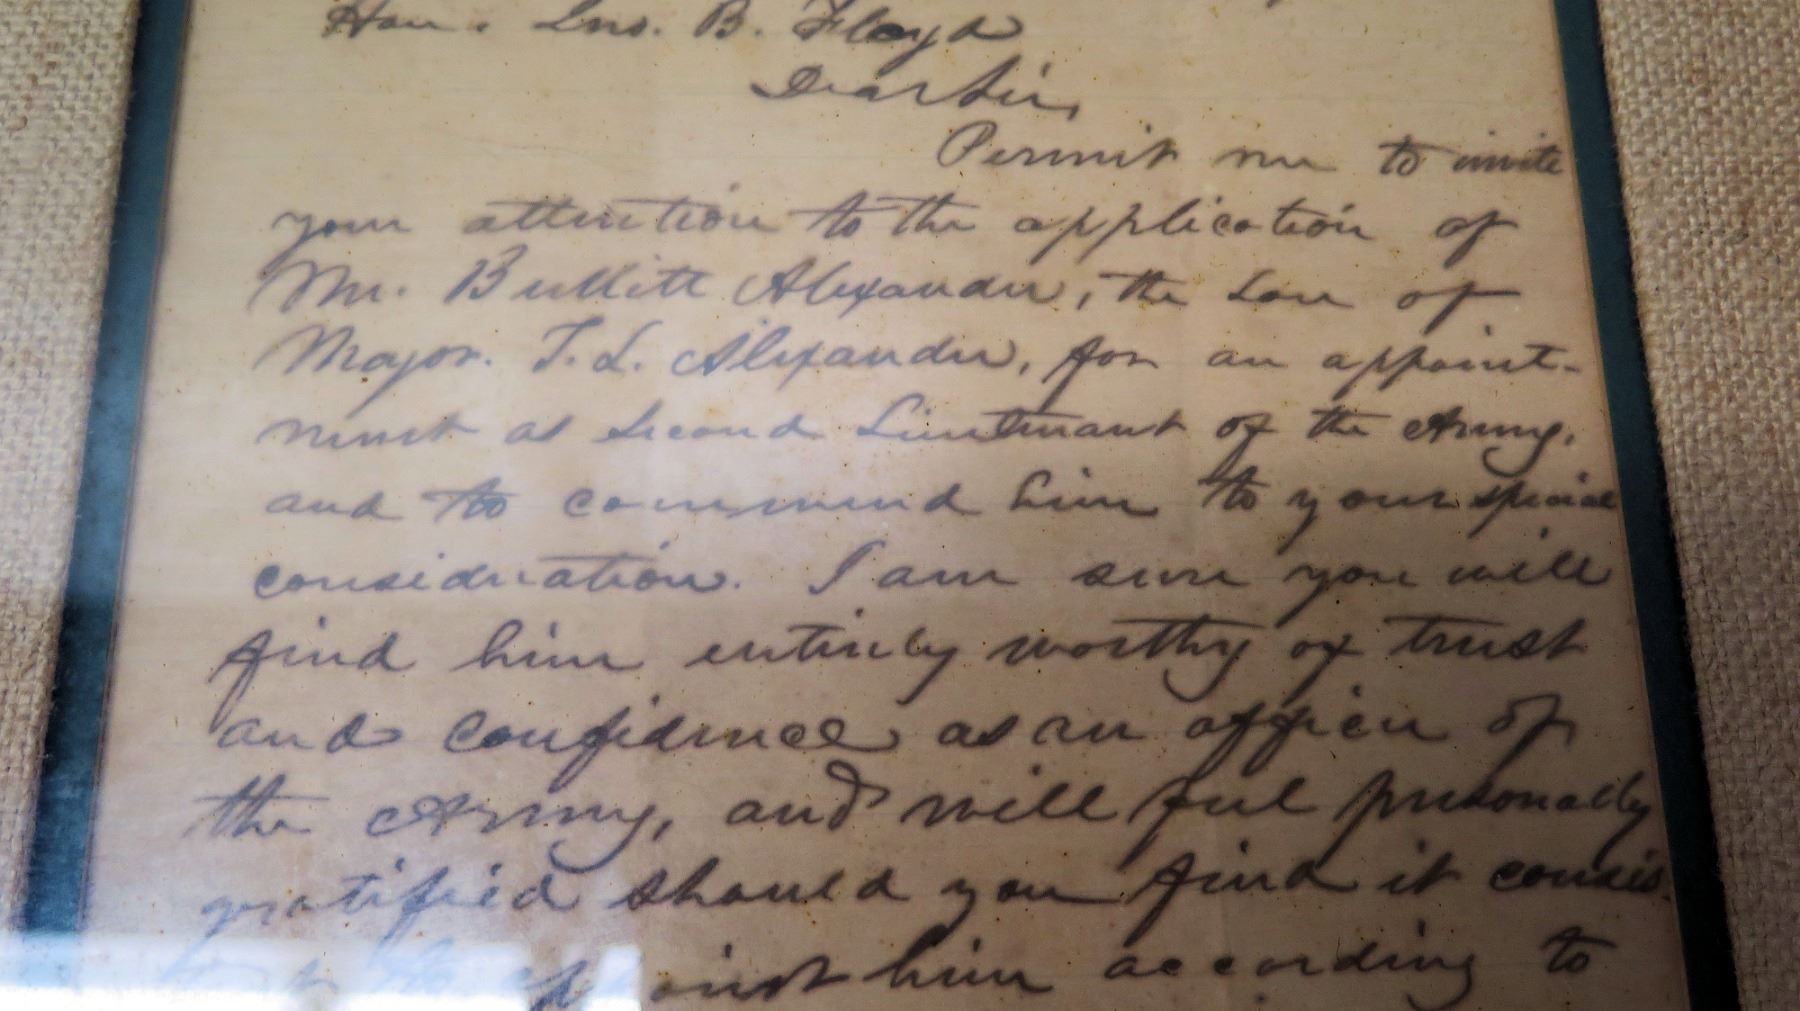 Hon. Jno. B. Floyd
Dear Sir,
Permit me to invite
your attention to the application of
Mr. Bullitt Alexander, the son of
Major. T. L. Alexander, for an appoint-
ment as Second Lieutenant of the Army,
and to commend him to your special
consideration. I am sure you will
find him entirely worthy of trust
and confidence as an officer of
the Army, and will feel personally
gratified should you find it consis-
tent to appoint him according to